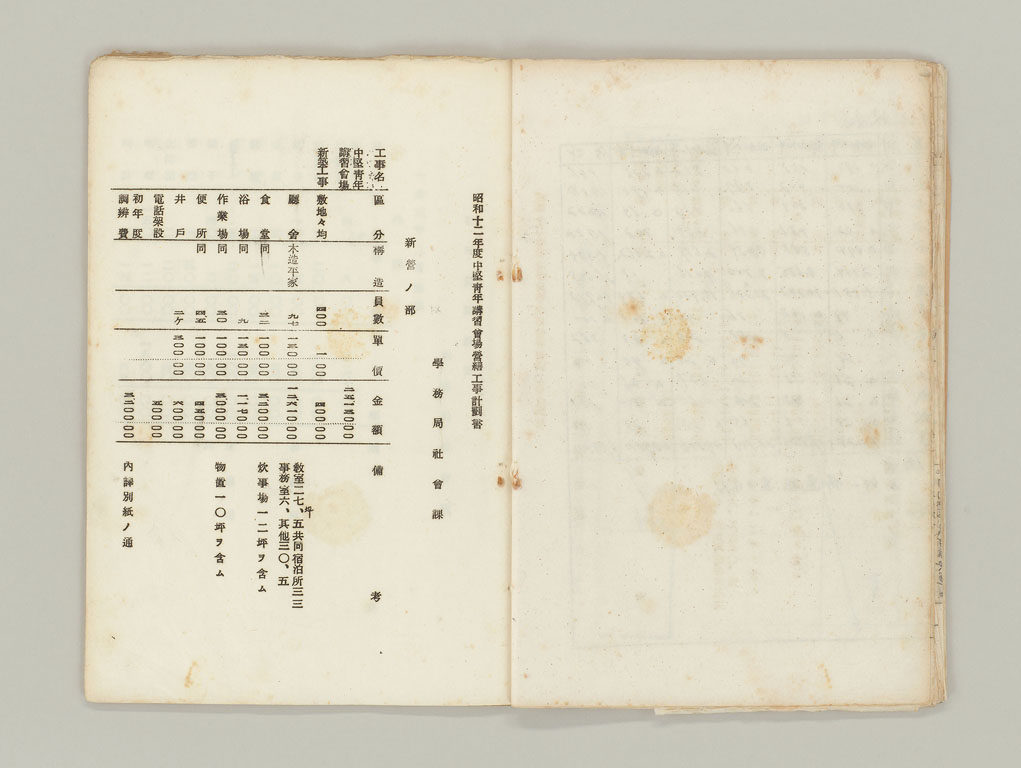 昭和十二年度中堅青年講習會場營繕工事計劃書
學務局社會課
新營ノ部
工事名 區分 構造 員數 單價 金額 備考
中堅青年
講習會場 二五一三〇〇〇
新築工事 敷地々均 四〇〇 一〇〇 四〇〇〇〇
廳舍 木造平家 九七 一三〇〇〇 一二六一〇〇〇 教室二七、五坪共同宿泊所三三
事務室六、其他三〇、五
食堂 同 三二 一〇〇〇〇 三二〇〇〇〇 炊事場一二坪ヲ含ム
浴場 同 九 一三〇〇〇 一一七〇〇〇
作業場 同 三〇 一〇〇〇〇 三〇〇〇〇〇 物置一〇坪ヲ含ム
便所 同 四五 一〇〇〇〇 四五〇〇〇
井戶 二ヶ 三〇〇〇〇 六〇〇〇〇
電話架設 五〇〇〇〇
初年度
調辨費 三二〇〇〇〇 內譯別紙ノ通